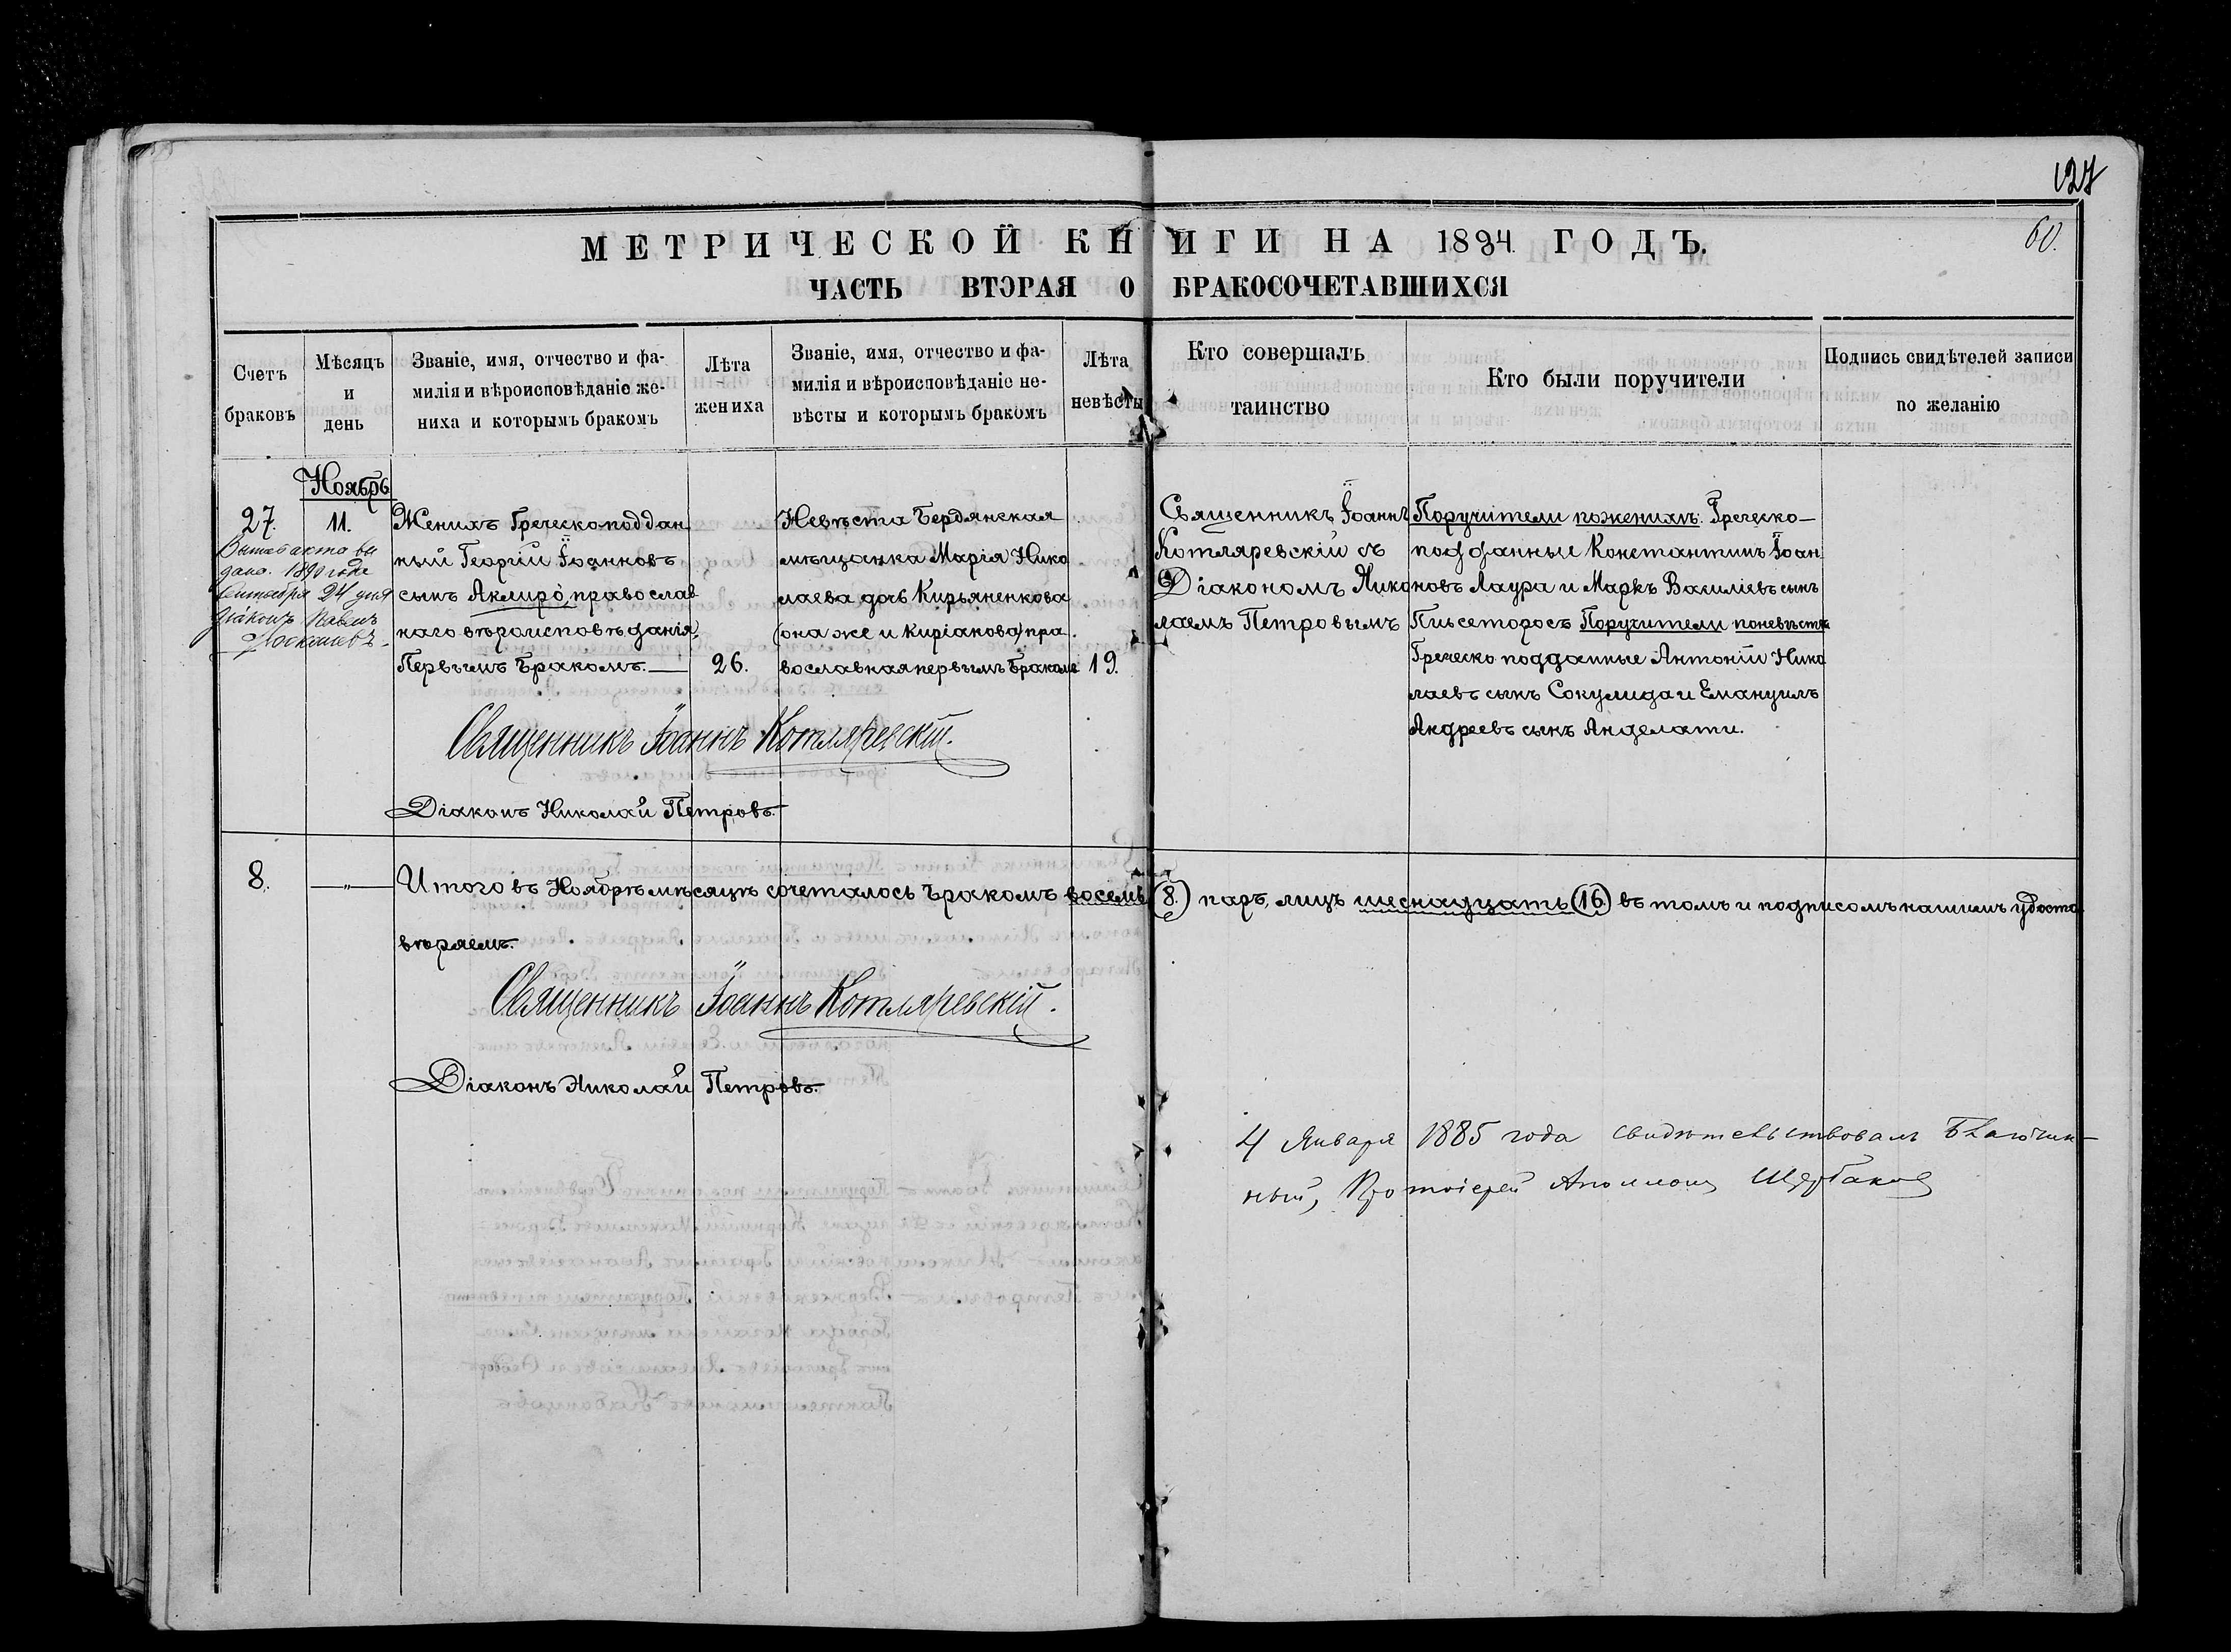 127
60.
МЕТРИЧЕСКОЙ КНИГИ НА 1884 ГОДЪ.
ЧАСТЬ ВТОРАЯ О БРАКОСОЧЕТАВШИХСЯ
Счетъ браковъ
Мѣсяцъ и день
Званіе, имя, отчество и фа-
милія и вѣроисповѣданіе же-
ниха и которымъ бракомъ
Лѣта жениха
Званіе, имя, отчество и фа-
милія и вѣроисповѣданіе не-
вѣсты и которымъ бракомъ
Лѣта невѣсты
Кто совершалъ таинство
Кто были поручители
Подпись свидѣтелей записи
по желанію
Ноябрь
27.
11.
акта вы
дана. 1890 года
Сентября 24 дня
Діаконъ Павелъ
Женихъ Греческоподдан
ный Георгій Іоанновъ
сынъ Аклиро, православ
наго вѣроисповѣданія,
Первымъ бракомъ.
26.
Невѣста Бердянская
мѣщанка Марія Нико
лаева дочь Кирьяненкова
(она же и Киріакова) пра
вославная первымъ бракомъ
19.
Священникъ Іоаннъ
Котляревскій съ
Діакономъ Нико
лаемъ Петровымъ
Поручители по женихѣ: Греческо-
подданные Константинъ Іоан
новъ Лаура и Маркъ Василіевъ сынъ
Письеторосъ Поручители по невѣстѣ
Греческо подданные Антоній Нико
лаевъ сынъ Сокулида и Емануилъ
Андреевъ сынъ Анделати.
Священникъ Іоаннъ Котляревскій.
Діаконъ Николай Петровъ.
8.
—„—
Итого въ Ноябрѣ мѣсяцѣ сочеталось бракомъ восемь (8.) паръ, лицъ шеснадцать (16) въ томъ и подписомъ нашимъ удосто
вѣряемъ.
Священникъ Іоаннъ Котляревскій.
Діаконъ Николай Петровъ.
4 Января 1885 года свидѣтельствовалъ Благочин-
ный, Протоіерей Аполлонъ Щербаковъ